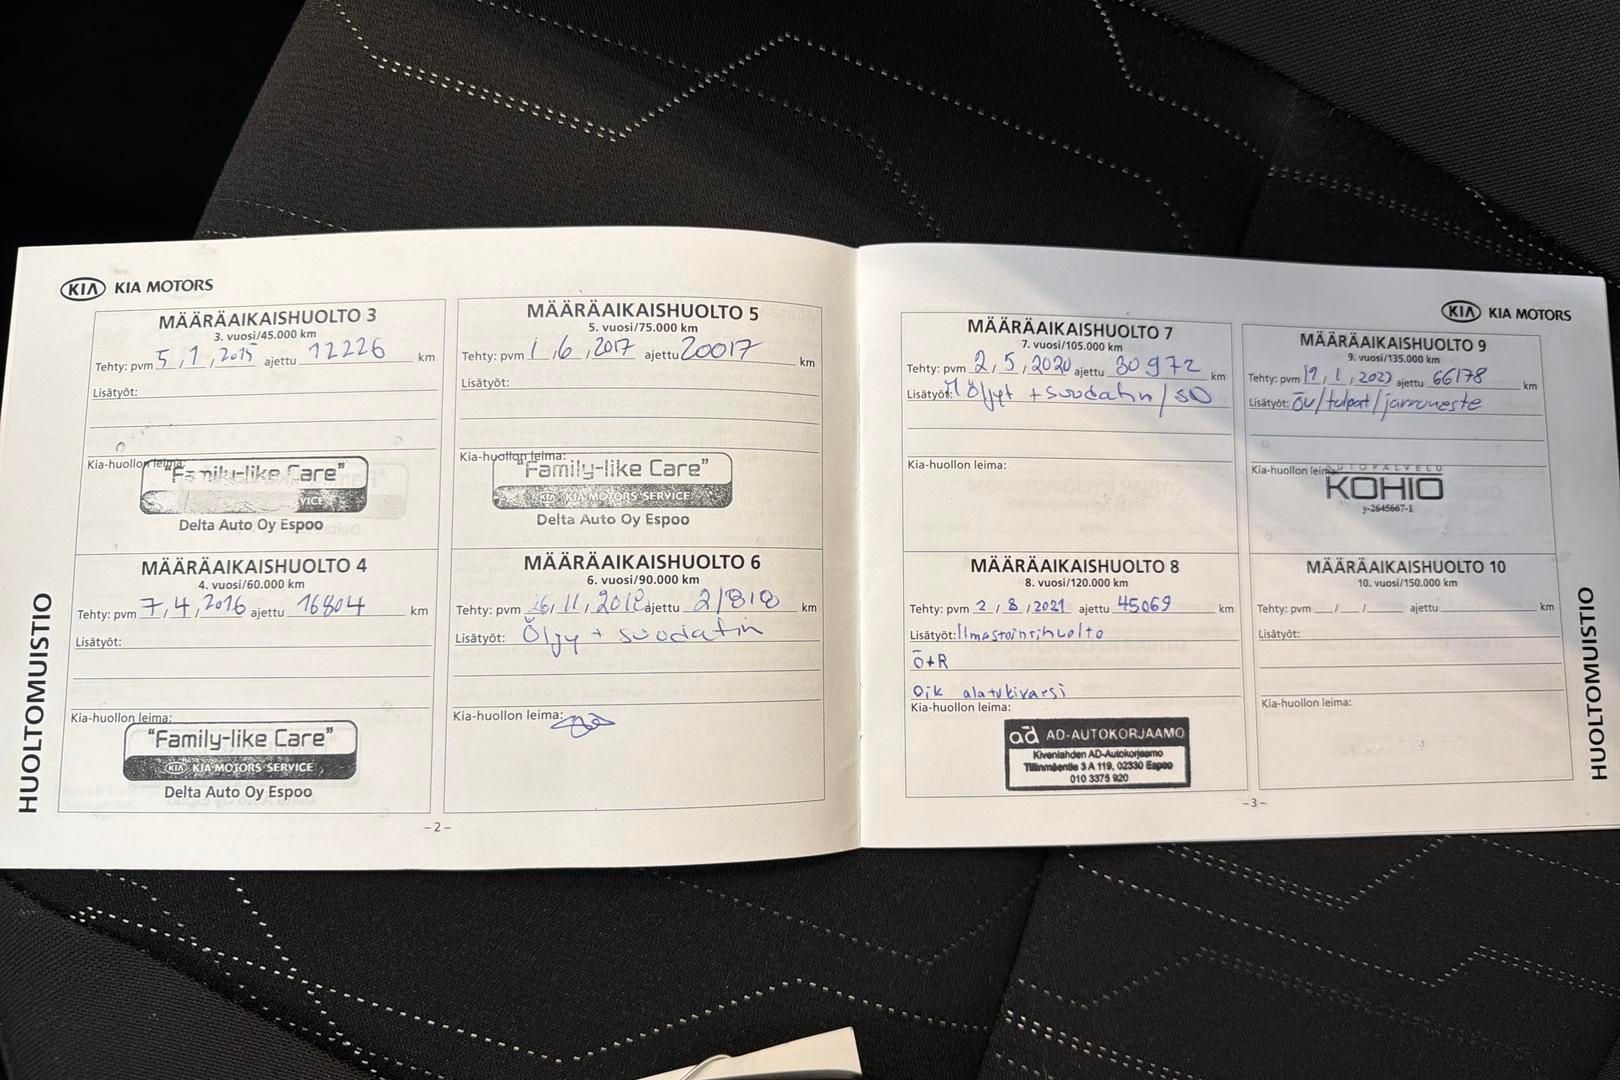 KIA KIA MOTORS
MÄÄRÄAIKAISHUOLTO 3
3. vuosi/45.000 km
Tehty: pvm 5 / 1 / 2015 ajettu 12226 km
Lisätyöt:
Kia-huollon leima:
"Family-like Care"
VICE
Delta Auto Oy Espoo
MÄÄRÄAIKAISHUOLTO 4
4. vuosi/60.000 km
Tehty: pvm 7 / 4 / 2016 ajettu 16804 km
Lisätyöt:
Kia-huollon leima:
"Family-like Care"
KIA KIA MOTORS SERVICE
Delta Auto Oy Espoo
MÄÄRÄAIKAISHUOLTO 5
5. vuosi/75.000 km
Tehty: pvm 1 / 6 / 2017 ajettu 20017 km
Lisätyöt:
Kia-huollon leima:
"Family-like Care"
KIA KIA MOTORS SERVICE
Delta Auto Oy Espoo
MÄÄRÄAIKAISHUOLTO 6
6. vuosi/90.000 km
Tehty: pvm 11 ajettu km
Lisätyöt: Öljy + suodatin
Kia-huollon leima:
HUOLTOMUISTIO
- 2 -
KIA KIA MOTORS
MÄÄRÄAIKAISHUOLTO 7
7. vuosi/105.000 km
Tehty: pvm 2 / 5 / 2020 ajettu 30972 km
Lisätyöt: Öljyt + suodatin /
Kia-huollon leima:
MÄÄRÄAIKAISHUOLTO 8
8. vuosi/120.000 km
Tehty: pvm 2 / 8 / 2021 ajettu 45069 km
Lisätyöt: Ilmastoinnihuolto
Ö+R
Oik alatukivarsi
Kia-huollon leima:
ad AD-AUTOKORJAAMO
Kivenlahden AD-Autokorjaamo
Tillinmäentie 3 A 119, 02330 Espoo
010 3375 920
MÄÄRÄAIKAISHUOLTO 9
9. vuosi/135.000 km
Tehty: pvm 19 / 1 / 2023 ajettu 66178 km
Lisätyöt: Öv/tulpat/jarruneste
Kia-huollon leima:
AUTOPALVELU
KOHIO
y-2645667-1
MÄÄRÄAIKAISHUOLTO 10
10. vuosi/150.000 km
Tehty: pvm / / ajettu km
Lisätyöt:
Kia-huollon leima:
HUOLTOMUISTIO
- 3 -